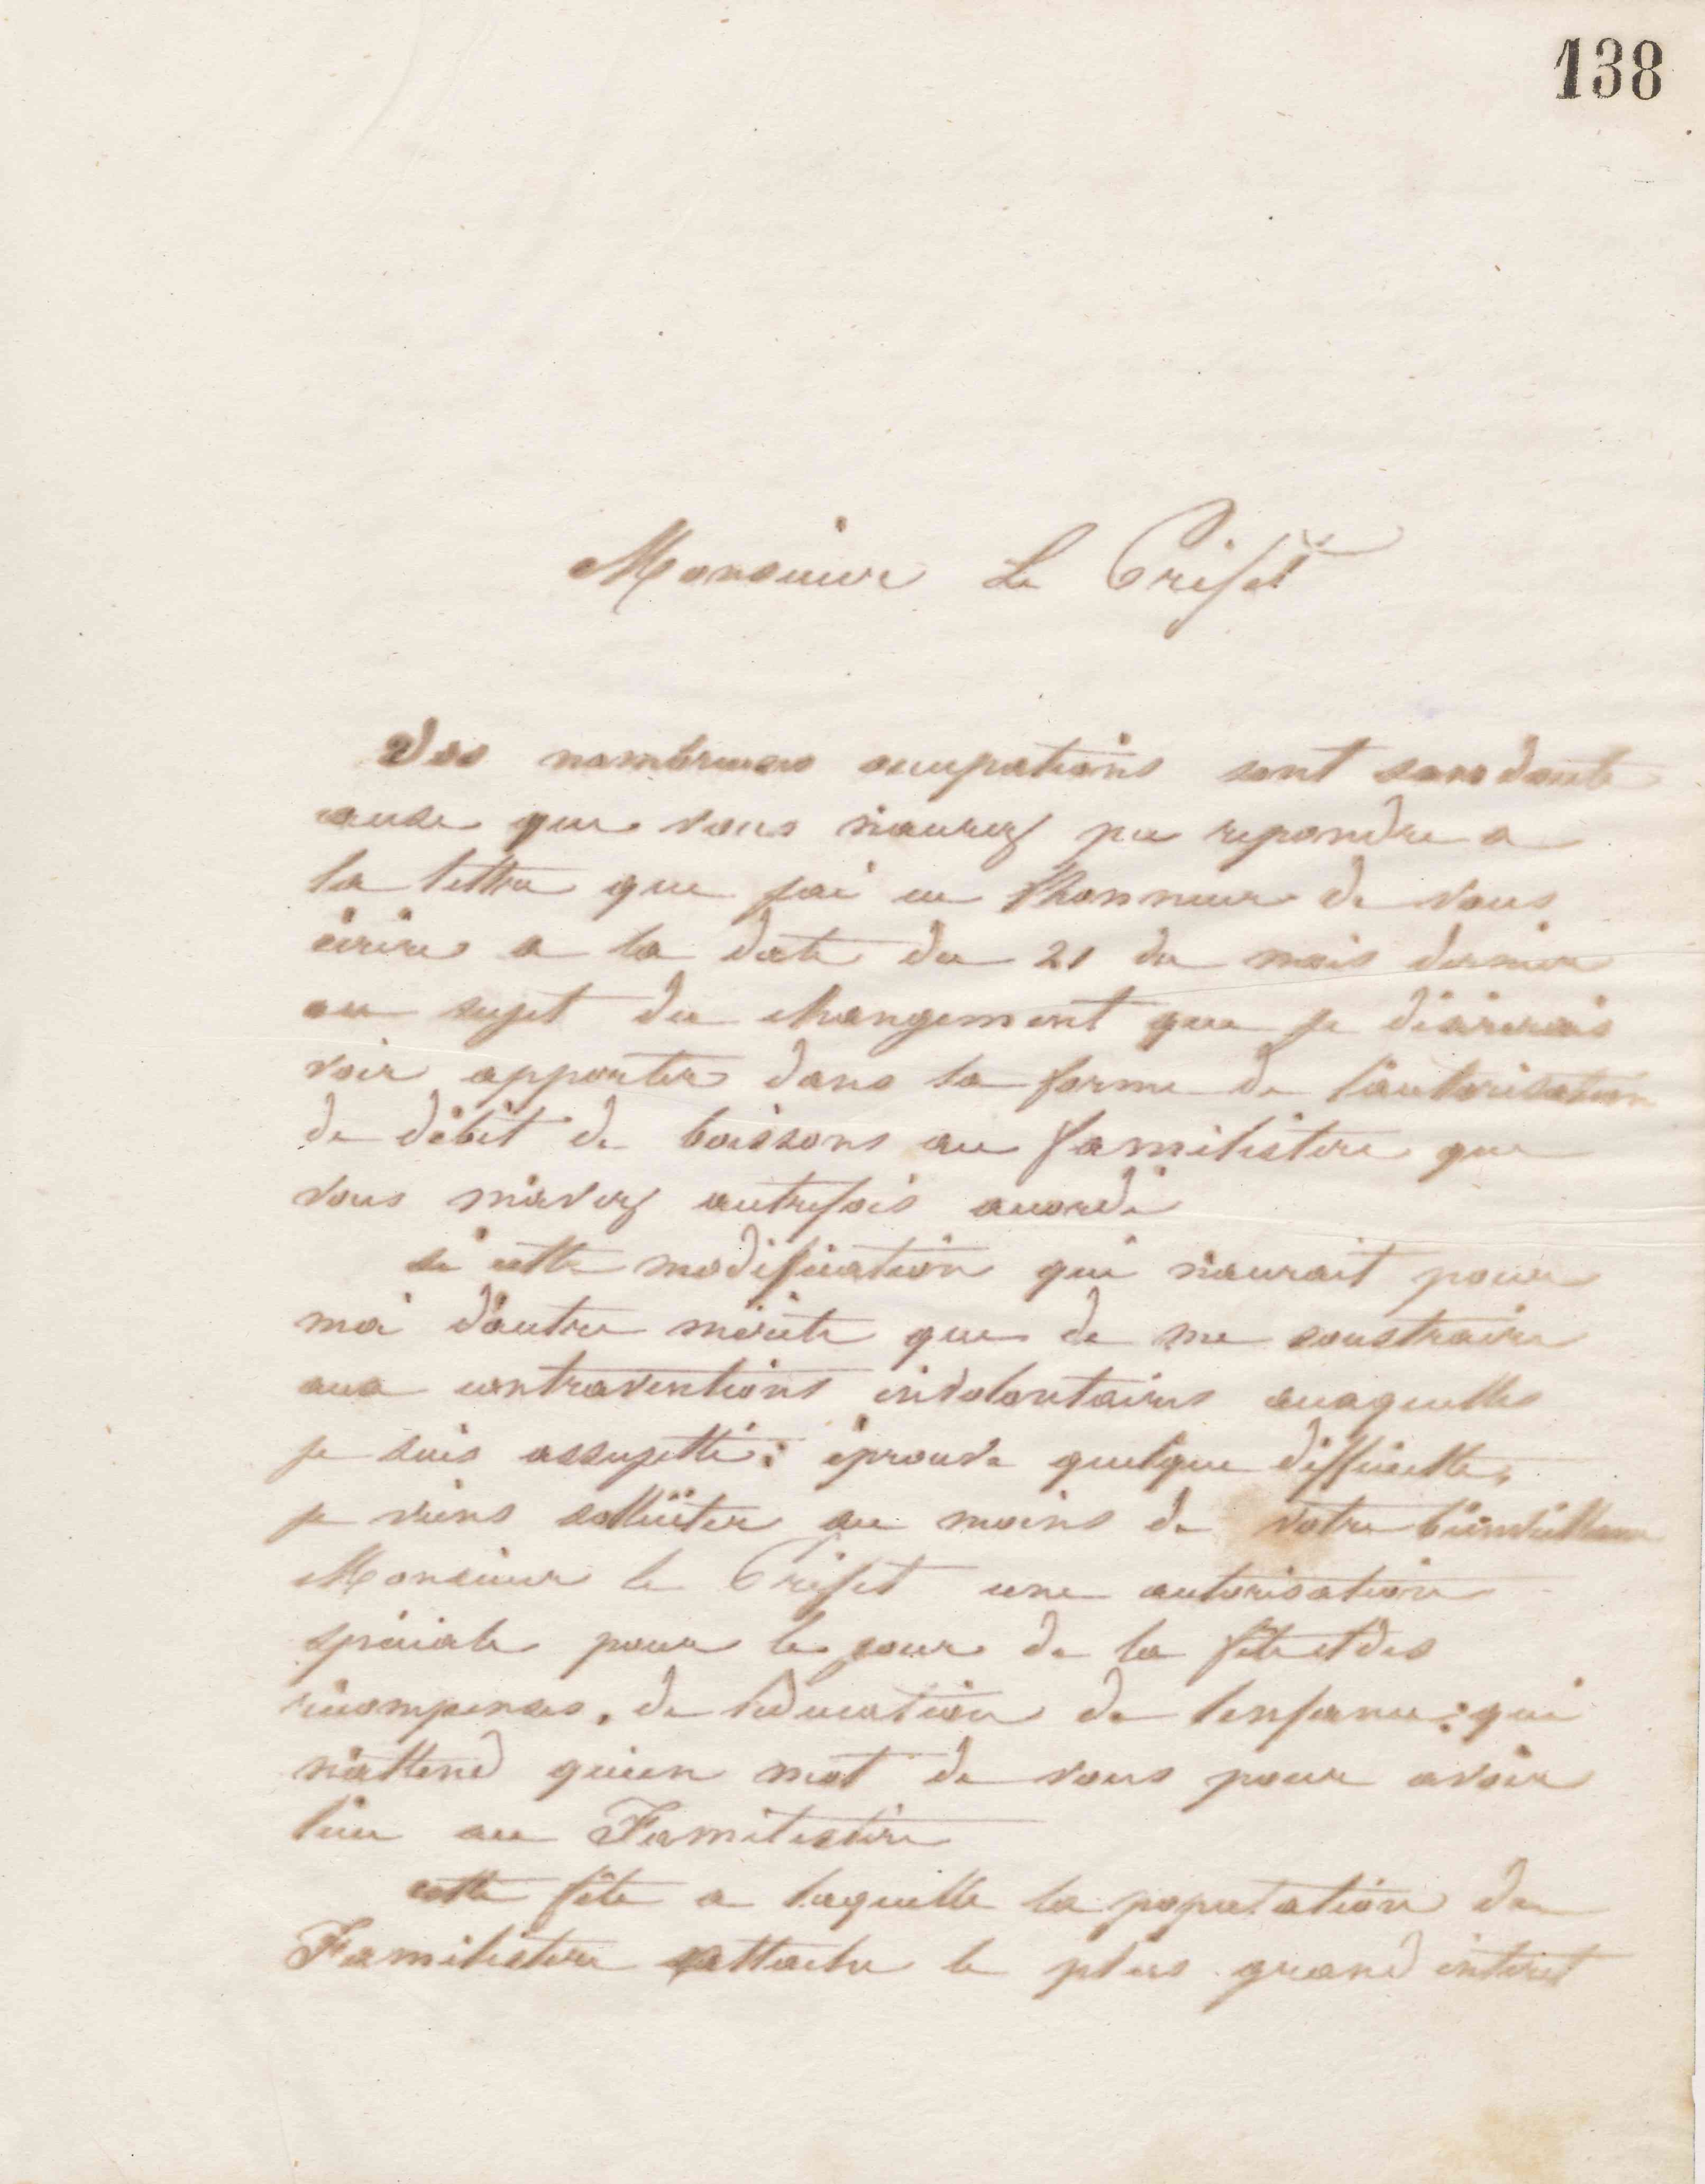 138
Monsieur Le Préfet
Vos nombreuses occupations sont sans doute
cause que vous n'aurez pu repondre a
la lettre que j'ai eu l'honneur de vous
écrire a la date du 21 du mois dernier
au sujet du changement que je désirerais
voir apporter dans la forme de l'autorisation
de débit de boissons au familistere que
vous m'avez autrefois accordé
si cette modification qui n'aurait pour
moi d'autre mérite que de me soustraire
aux contraventions involontaires auxquelles
je suis assujetti: éprouve quelque difficulté,
je viens solliciter au moins de votre bienveillance
Monsieur le Préfet une autorisation
spéciale pour le jour de la fête et des
récompenses, de l'éducation de l'enfance: qui
n'attend qu'un mot de vous pour avoir
lieu au Familistère
cette fête a laquelle la population du
Familistere attache le plus grand interet